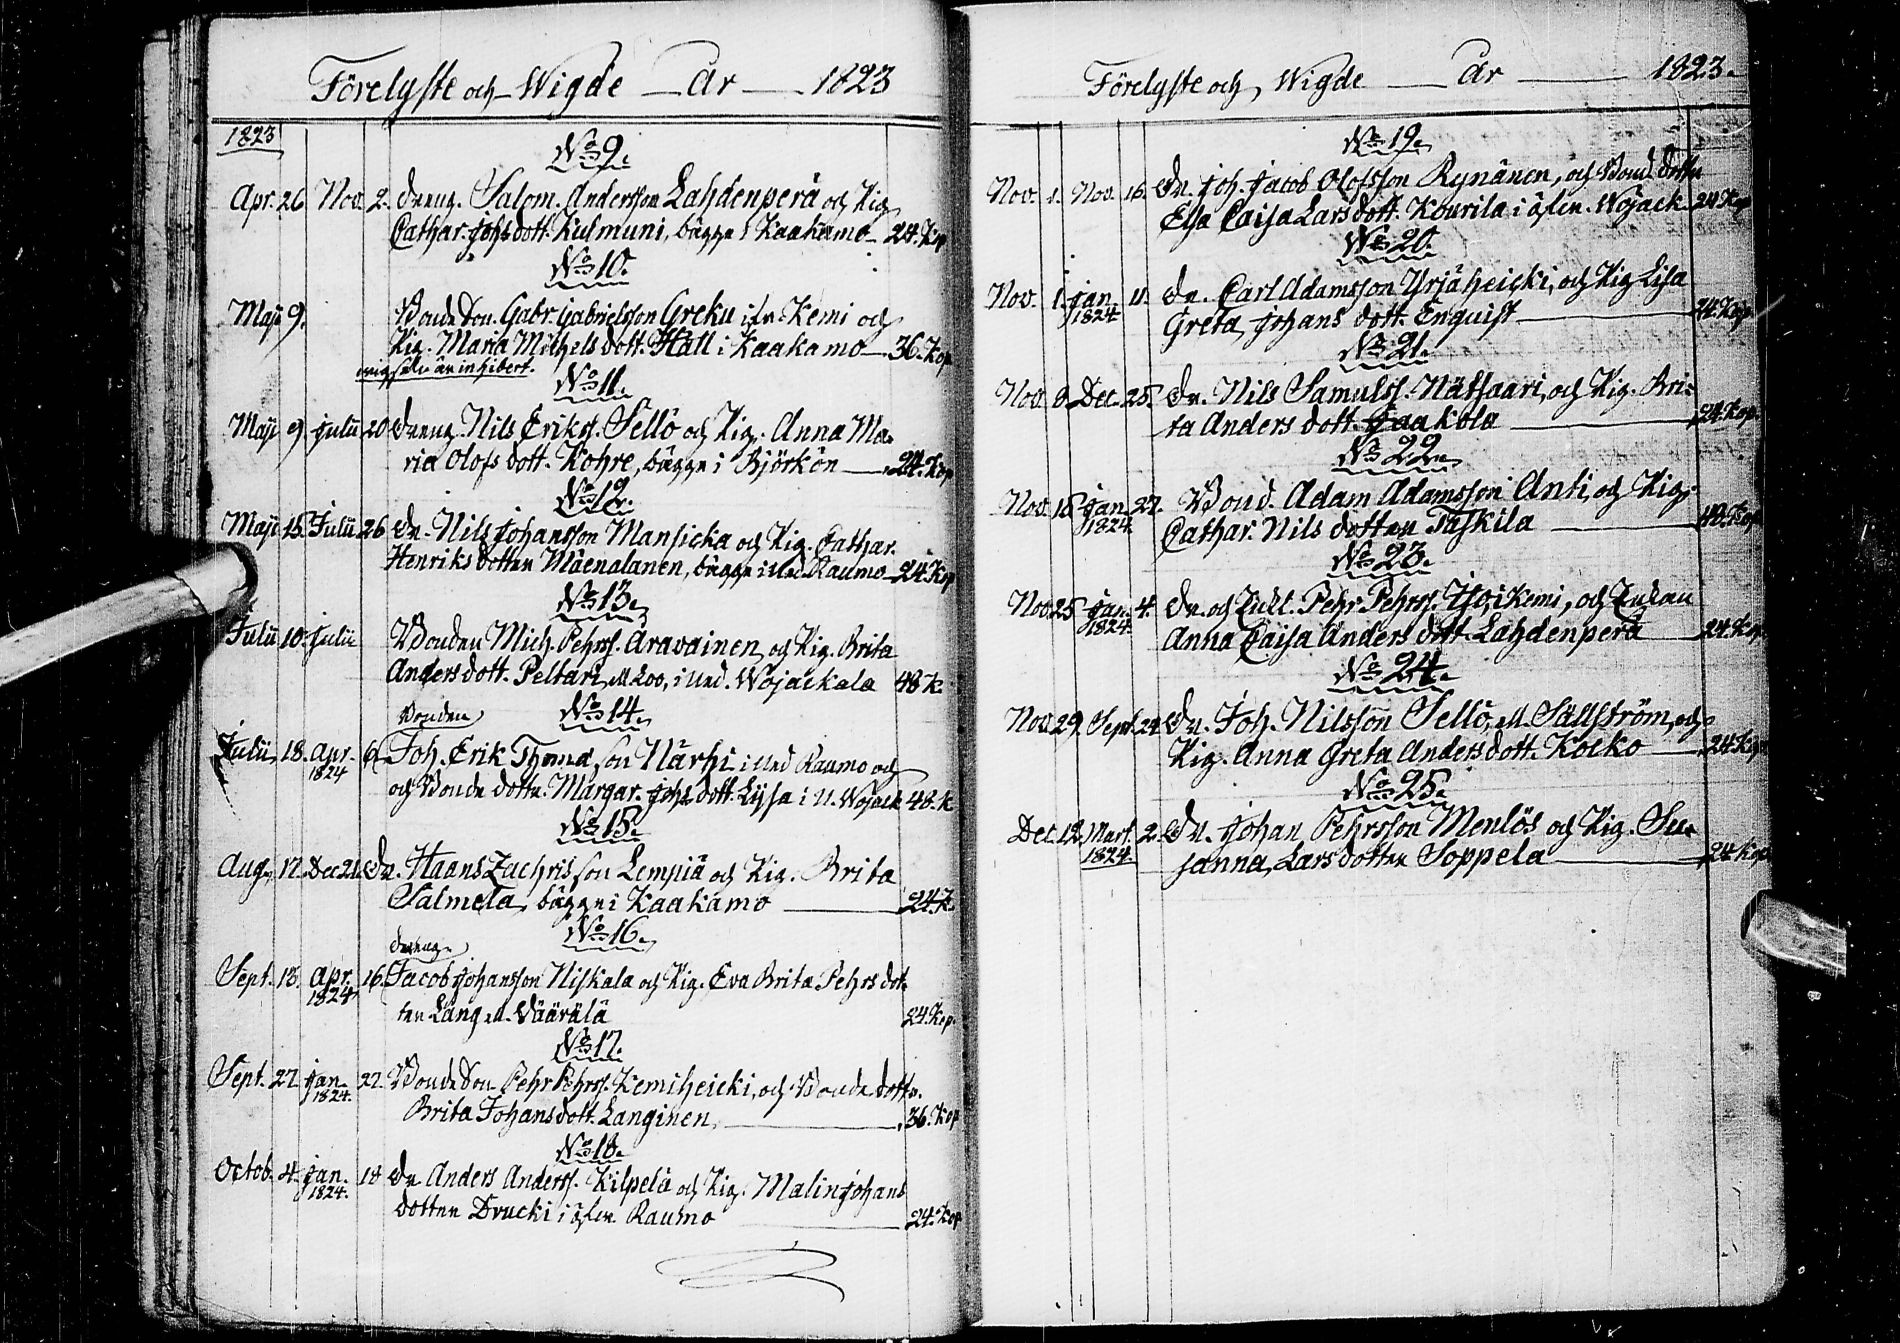 Förelyste och Wigde År 1823
1823
No 9.
Apr. 26 Nov. 2. Dreng. Salom. Andersson Lahdenperä och Pig.
Cathar. Johs dott. Kulmuni, bägge i Kaakamo 24. Kop
No 10.
Maji 9. Bonde Son. Gabr. Gabrielsson Greku ifr. Kemi och
Pig. Maria Michels dott. Häll i Kaakamo 36. Kop
är inhibert.
No 11.
Maji 9. Julii 20 Dreng. Nils Erikss. Sello och Pig. Anna Ma-
ria Olofs dott. Kohre, bägge i Björkön 24. Kop
No 12.
Maji 15. Julii 26 Dr. Nils Johansson Mansicka och Pig. Cathar.
Henriks dotter Mäenalanen, bägge i Ned. Raumo 24. Kop
No 13.
Julii 10. Julii Bonden Mich. Pehrss. Aravainen och Pig. Brita
Anders dott. Peltari, ell. Loo, i Ned. Wojackala 48 k.
No 14.
Bonden
Julii 18. Apr. 6. Joh. Erik Thomasson Närhi i Ned Raumo och
1824
och Bonde dottr. Margar. Johs dott. Lyssa i N. Wojack 48. k
No 15.
Aug. 17. Dec 21. Dr. Haans Zachrisson Lempiä och Pig. Brita
Salmela, bägge i Kaakamo 24. K.
No 16.
Dreng.
Sept. 13. Apr. 16. Jacob Johansson Niskala och Pig. Eva Brita Pehrs dot-
1824
ter Läng ell. Väärälä 24. Kop.
No 17.
Sept. 27 Jan. 27. Bonde Son Pehr Pehrss. Kemiheicki, och Bonde dottr.
1824.
Brita Johans dott. Langinen, 36. Kop
No 18.
Octob. 4. Jan. 18 Dr. Anders Anderss. Kilpelä och Pig. Malin Johans
1824.
dotter Drucki i öfer Raumo 24. Kop
Förelyste och Wigde År 1823.
No 19.
Nov. 1. Nov. 16. Dr. Joh. Jacob Olofsson Rynänen, och Bond. dotter
Elsa Caisa Lars dott. Kourila i öfer. Wojack 24. Kop
No 20.
Nov. 1. Jan. 11. Dr. Carl Adamsson Yrjäheicki, och Pig. Lisa
1824
Greta Johans dott. Enquist 24. Kop
No 21.
Nov. 8. Dec. 25. Dr. Nils Samulss. Nätsaari, och Pig. Bri-
ta Anders dott. Jaakola 24. Kop.
No 22.
Nov. 15 Jan. 27. Bond. Adam Adamsson Anti, och Pig.
1824
Cathar. Nils dotter Taskila 48. Kop
No 23.
Nov. 25 Jan. 4. Dr. och Enkl. Pehr Pehrss. Isoikemi, och Enkan
1824.
Anna Caisa Anders dott. Lahdenperä 24. Kop.
No 24.
Nov. 29. Sept. 24. Dr. Joh. Nilsson Sello, ell. Sällström, och
Pig. Anna Greta Anders dott. Kocko 24. Kop
No 25.
Dec. 12. Mart. 2. Dr. Johan Pehrsson Menlös och Pig. Su-
1824.
sanna Lars dotter Soppela 24. Kop